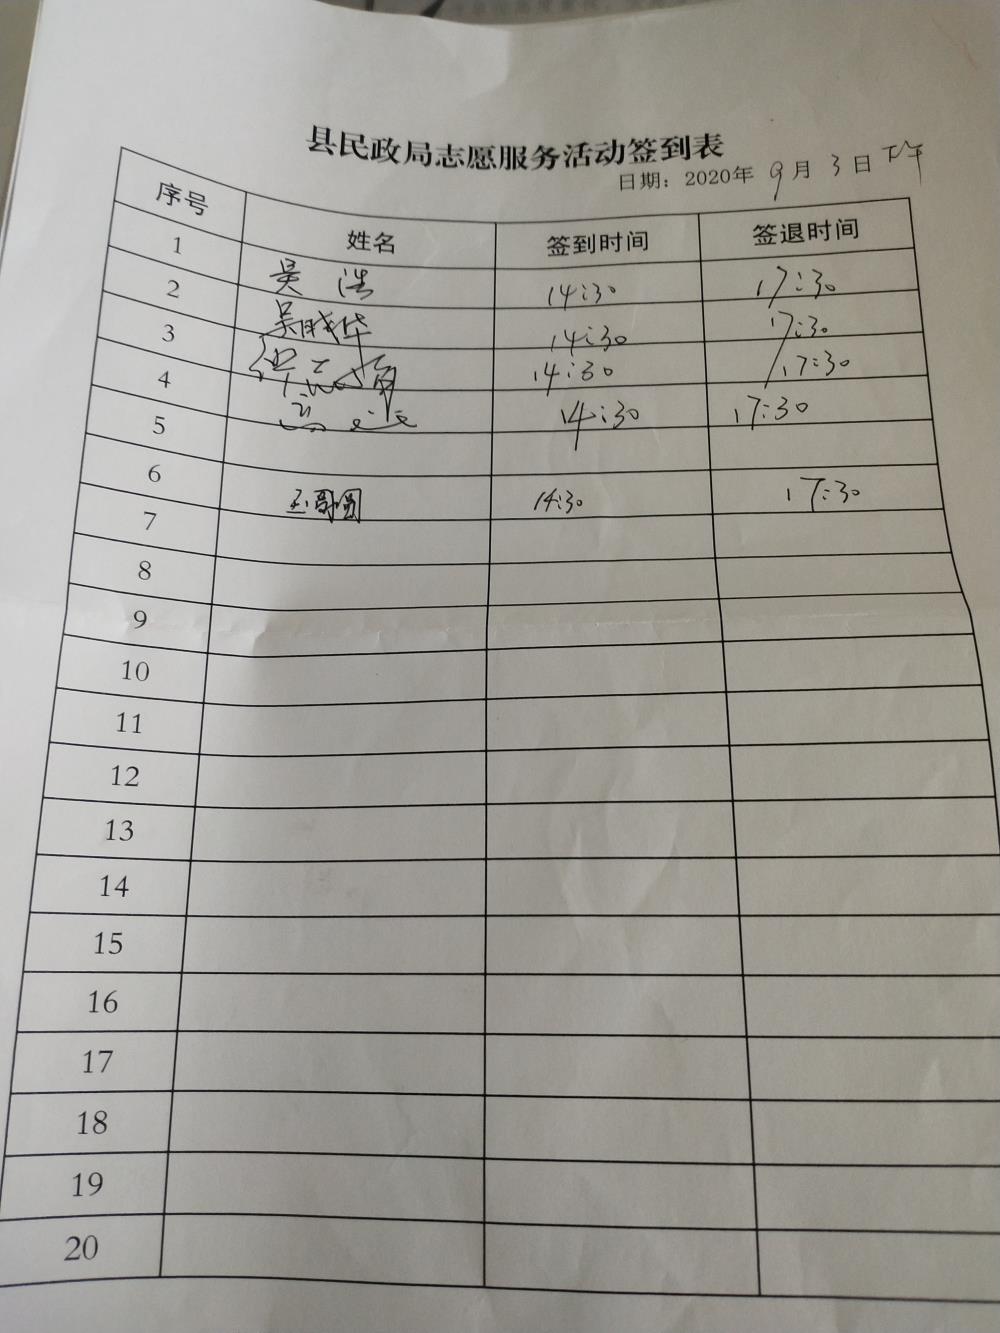 县民政局志愿服务活动签到表
日期：2020年9月3日下午
序号 姓名 签到时间 签退时间
1 吴浩 14:30 17:30
2 吴晓华 14:30 17:30
3 14:30 17:30
4 14:30 17:30
5
6 14:30 17:30
7
8
9
10
11
12
13
14
15
16
17
18
19
20